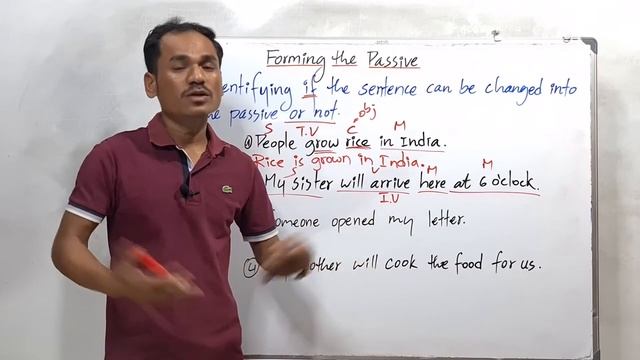 Forming the Passive
entifying if the sentence can be changed into
e passive or not.
obj
S T.V C M
① People grow rice in India.
Rice is grown in India.
S V M M
My sister will arrive here at 6 o'clock.
I.V
omeone opened my letter.
④ other will cook the food for us.